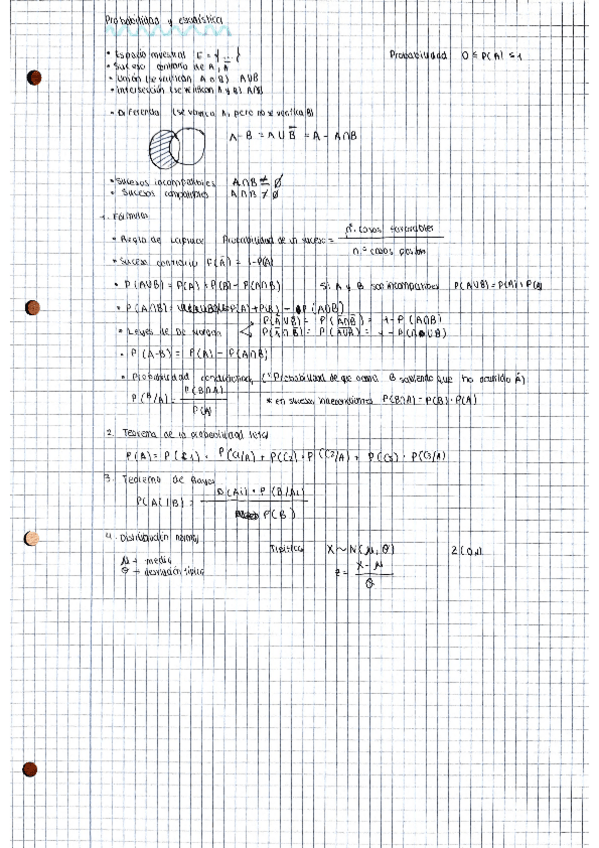 Probabilidad y estadística
• Espacio muestral E = { ... }
Probabilidad 0 ≤ P(A) ≤ 1
• Suceso contrario de A, Ā
• Unión (se verifican A o B) A∪B
• Intersección (se verifican A y B) A∩B
• Diferencia (se verifica A, pero no se verifica B)
A - B = A ∪ B̄ = A - A∩B
• Sucesos incompatibles A∩B = ∅
• Sucesos compatibles A∩B ≠ ∅
1. Fórmulas
• Regla de Laplace Probabilidad de un suceso = nº casos favorables / n.º casos posibles
• Suceso contrario P(Ā) = 1-P(A)
• P(A∪B) = P(A) = P(B) - P(A∩B) Si A y B son incompatibles P(A∪B) = P(A) + P(B)
• P(A∩B) = P(A) + P(B) - P(A∩B)
• Leyes de De Morgan
P(Ā∪B̄) = P(A∩B) = 1-P(A∩B)
P(Ā∩B̄) = P(A∪B) = 1-P(A∪B)
• P(A-B) = P(A) - P(A∩B)
• Probabilidad condicionada ("Probabilidad de que ocurra B sabiendo que ha ocurrido A)
P(B/A) = P(B∩A) / P(A)
* en sucesos independientes P(B∩A) = P(B) · P(A)
2. Teorema de la probabilidad total
P(A) = P( 1) · P(C1/A) + P(C2) · P(C2/A) + P(C3) · P(C3/A)
3. Teorema de Bayes
P(Ai/B) = P(Ai) · P(B/Ai) / P(B)
4. Distribución normal
Tipificar X ~ N(μ, θ) Z(0,1)
μ → media
θ → desviación típica
z = X-μ / θ